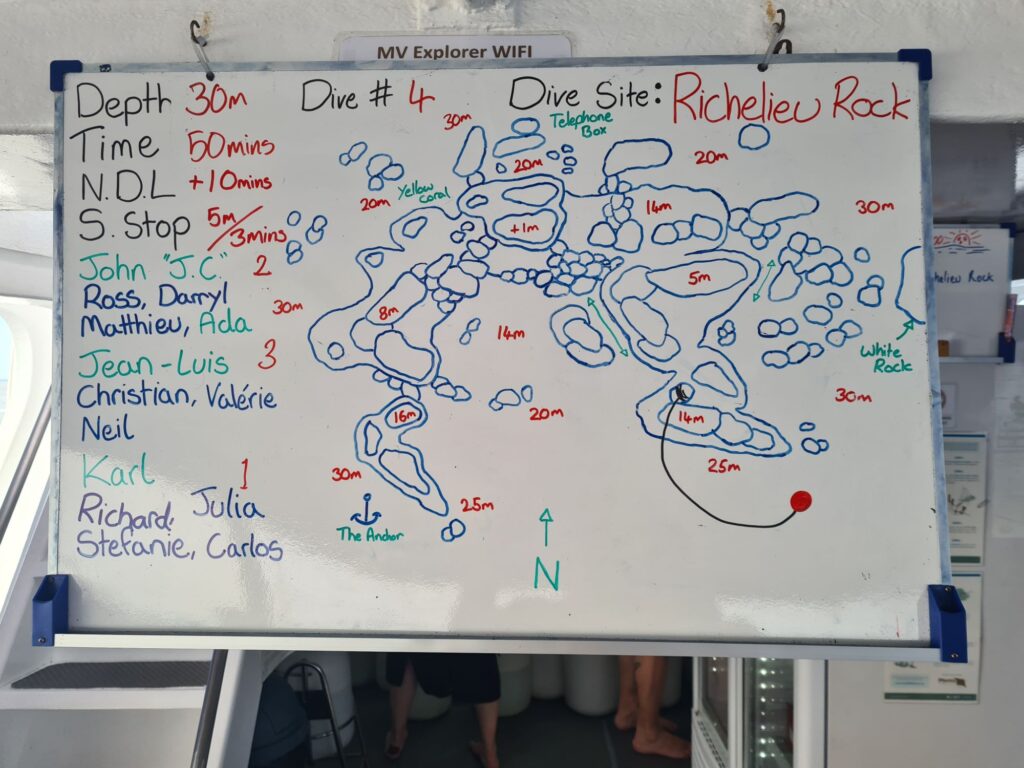 MV Explorer WIFI
Depth 30m
Dive # 4
Dive Site: Richelieu Rock
Time 50mins
N.D.L +10mins
S. Stop 5m/3mins
John "J.C." 2
Ross, Darryl
Matthieu, Ada
Jean-Luis 3
Christian, Valérie
Neil
Karl 1
Richard, Julia
Stefanie, Carlos
30m
Telephone
Box
20m
20m
Yellow
coral
20m
14m
30m
+1m
5m
30m
8m
14m
White
Rock
30m
16m
20m
14m
25m
30m
25m
The Anchor
N
Rock